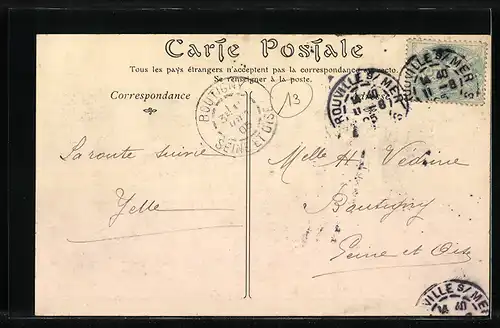 Carte Postale
Tous les pays étrangers n'acceptent pas la correspondance au recto.
Se renseigner à la poste.
Correspondance
13
SEINE ET OISE
ROUVILLE S/ MER
14 40
11 -8
05
ROUVILLE S/ MER
14 40
11 -8
La route suivie
Yelle
Melle H Védrine
Boutigny
Seine et Oise
VILLE S/ MER
14 40